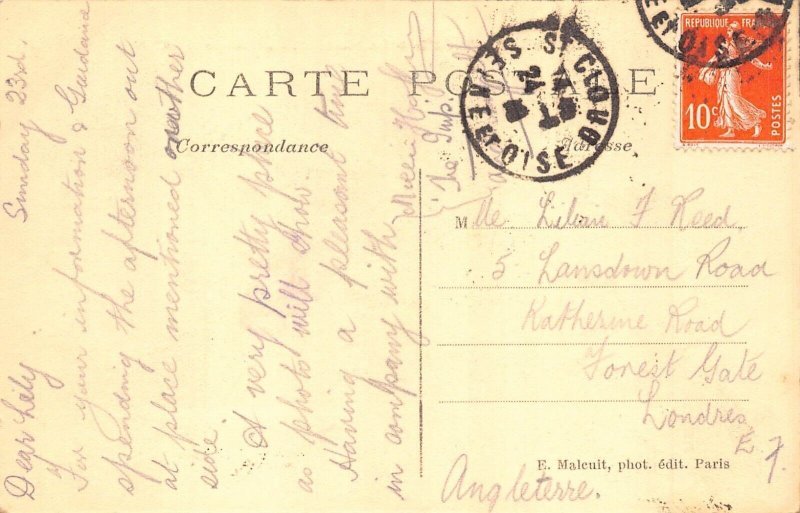 CARTE POSTALE
Correspondance
Adresse
Sunday 23rd.
Dear Lily
For your information & Guidance
spending the afternoon out
at place mentioned on other
side.
A very pretty place
as photo will show
Having a pleasant time
in company with
"The Imp.
Mlle Lilian F Reed
5 Lansdown Road
Katherine Road
Forest Gate
Londres
E 7.
Angleterre.
E. Malcuit, phot. édit. Paris
ST CLOUD
24
SEINE ET OISE
ET OISE
REPUBLIQUE FRA
10c
POSTES